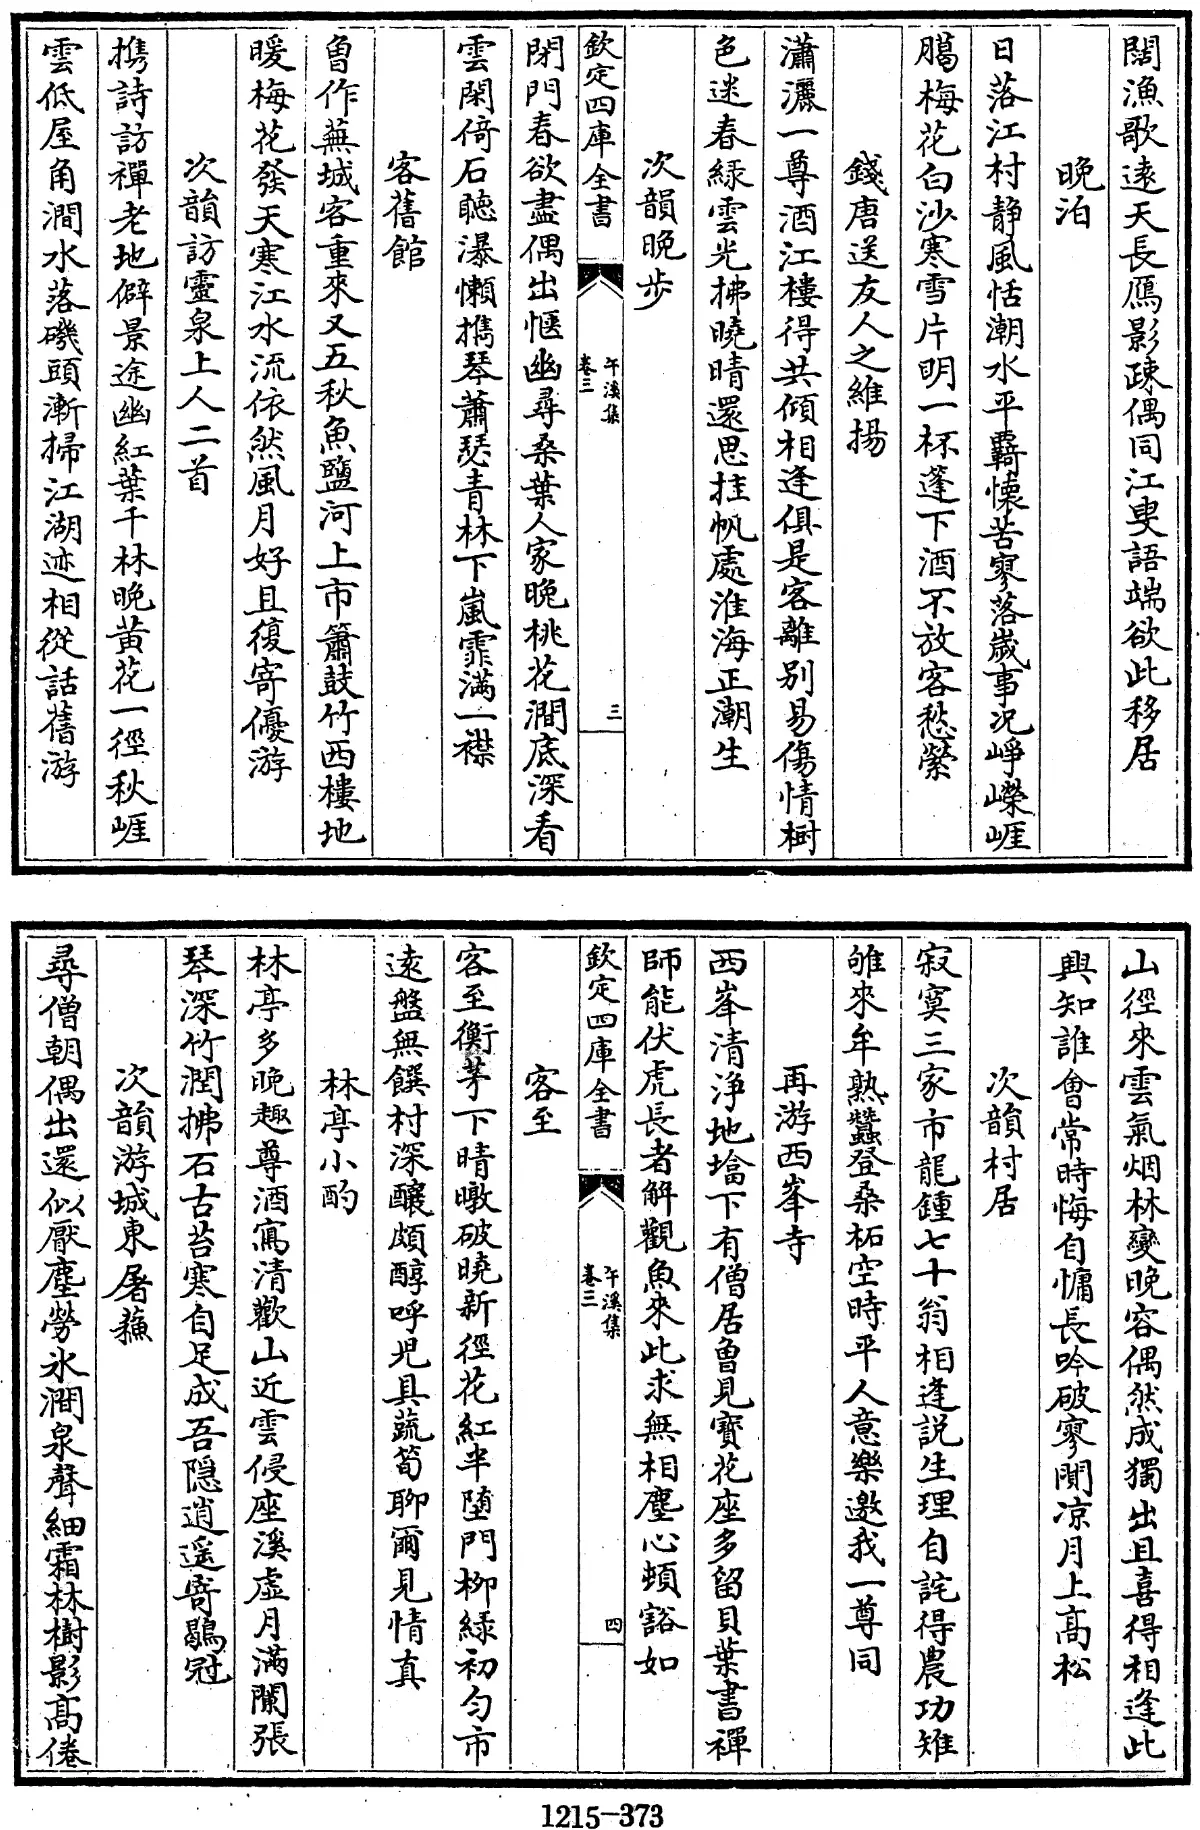 闊漁歌遠天長鴈影疎偶同江叟語端欲此移居
晚泊
日落江村静風恬潮水平覊懐苦寥落歲事况崢嶸崕
臈梅花白沙寒雪片明一杯蓬下酒不放客愁縈
錢唐送友人之維揚
瀟灑一尊酒江樓得共傾相逢俱是客離别易傷情樹
色迷春緑雲光拂曉晴還思挂帆處淮海正潮生
次韻晚步
欽定四庫全書
午溪集
卷三
三
閉門春欲盡偶出愜幽尋桑葉人家晚桃花澗底深看
雲閑倚石聴瀑懶擕琴蕭瑟青林下嵐霏滿一襟
客舊館
曾作蕪城客重來又五秋魚鹽河上市簫鼓竹西樓地
暖梅花發天寒江水流依然風月好且復寄優游
次韻訪靈泉上人二首
擕詩訪禪老地僻景途幽紅葉千林晚黄花一徑秋崕
雲低屋角澗水落磯頭漸掃江湖迹相從話舊游
山徑來雲氣烟林變晚容偶然成獨出且喜得相逢此
興知誰會常時悔自慵長吟破寥闃凉月上高松
次韻村居
寂寞三家市龍鍾七十翁相逢説生理自詫得農功雉
雊來牟熟蠶登桑柘空時平人意樂邀我一尊同
再游西峯寺
西峯清浄地墖下有僧居曾見寳花座多留貝葉書禪
師能伏虎長者解觀魚來此求無相塵心頓豁如
欽定四庫全書
午溪集
卷三
四
客至
客至衡茅下晴暾破曉新徑花紅半堕門柳緑初匀市
遠盤無饌村深釀頗醇呼兒具蔬筍聊爾見情真
林亭小酌
林亭多晚趣尊酒寫清歡山近雲侵座溪虚月滿闌張
琴深竹潤拂石古苔寒自足成吾隠逍遥寄鶡冠
次韻游城東屠蘓
尋僧朝偶出還似厭塵勞氷澗泉聲細霜林樹影高倦
1215-373